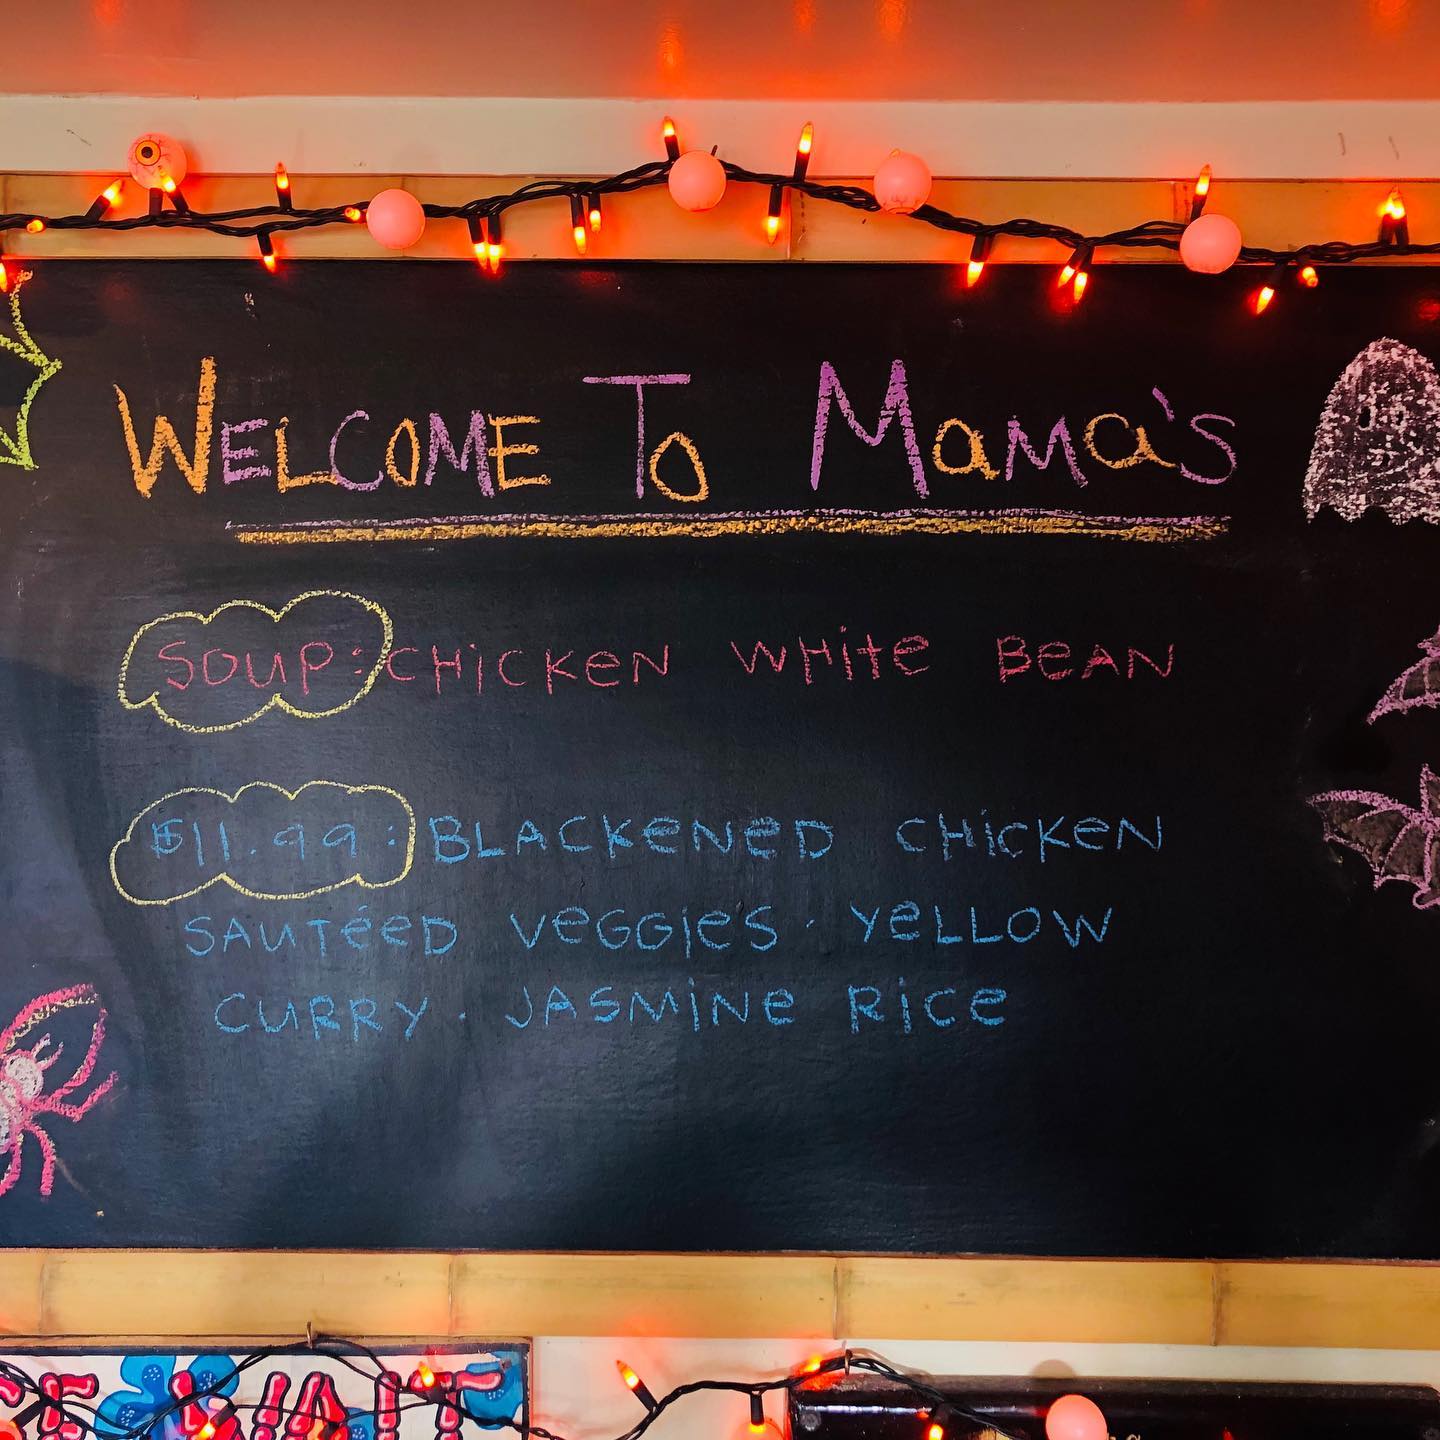 WELCOME TO MaMa's
SOUP: CHiCKeN WHite BeAN
$11.99: BLACKeNeD CHiCKeN
SAUTéeD VeGGies · YeLLOW
CURRY · JASMiNe RiCe
WAIT